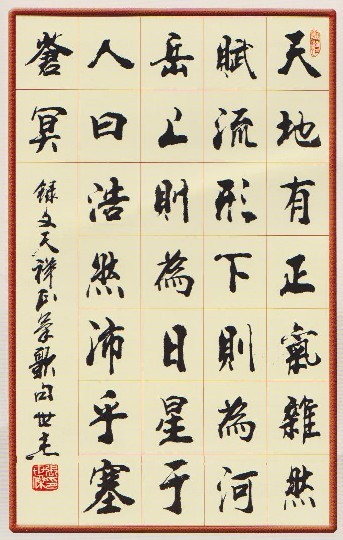 天地有正氣雜然
賦流形下則為河
岳上則為日星于
人曰浩然沛乎塞
蒼冥
錄文天祥正氣歌句世杰